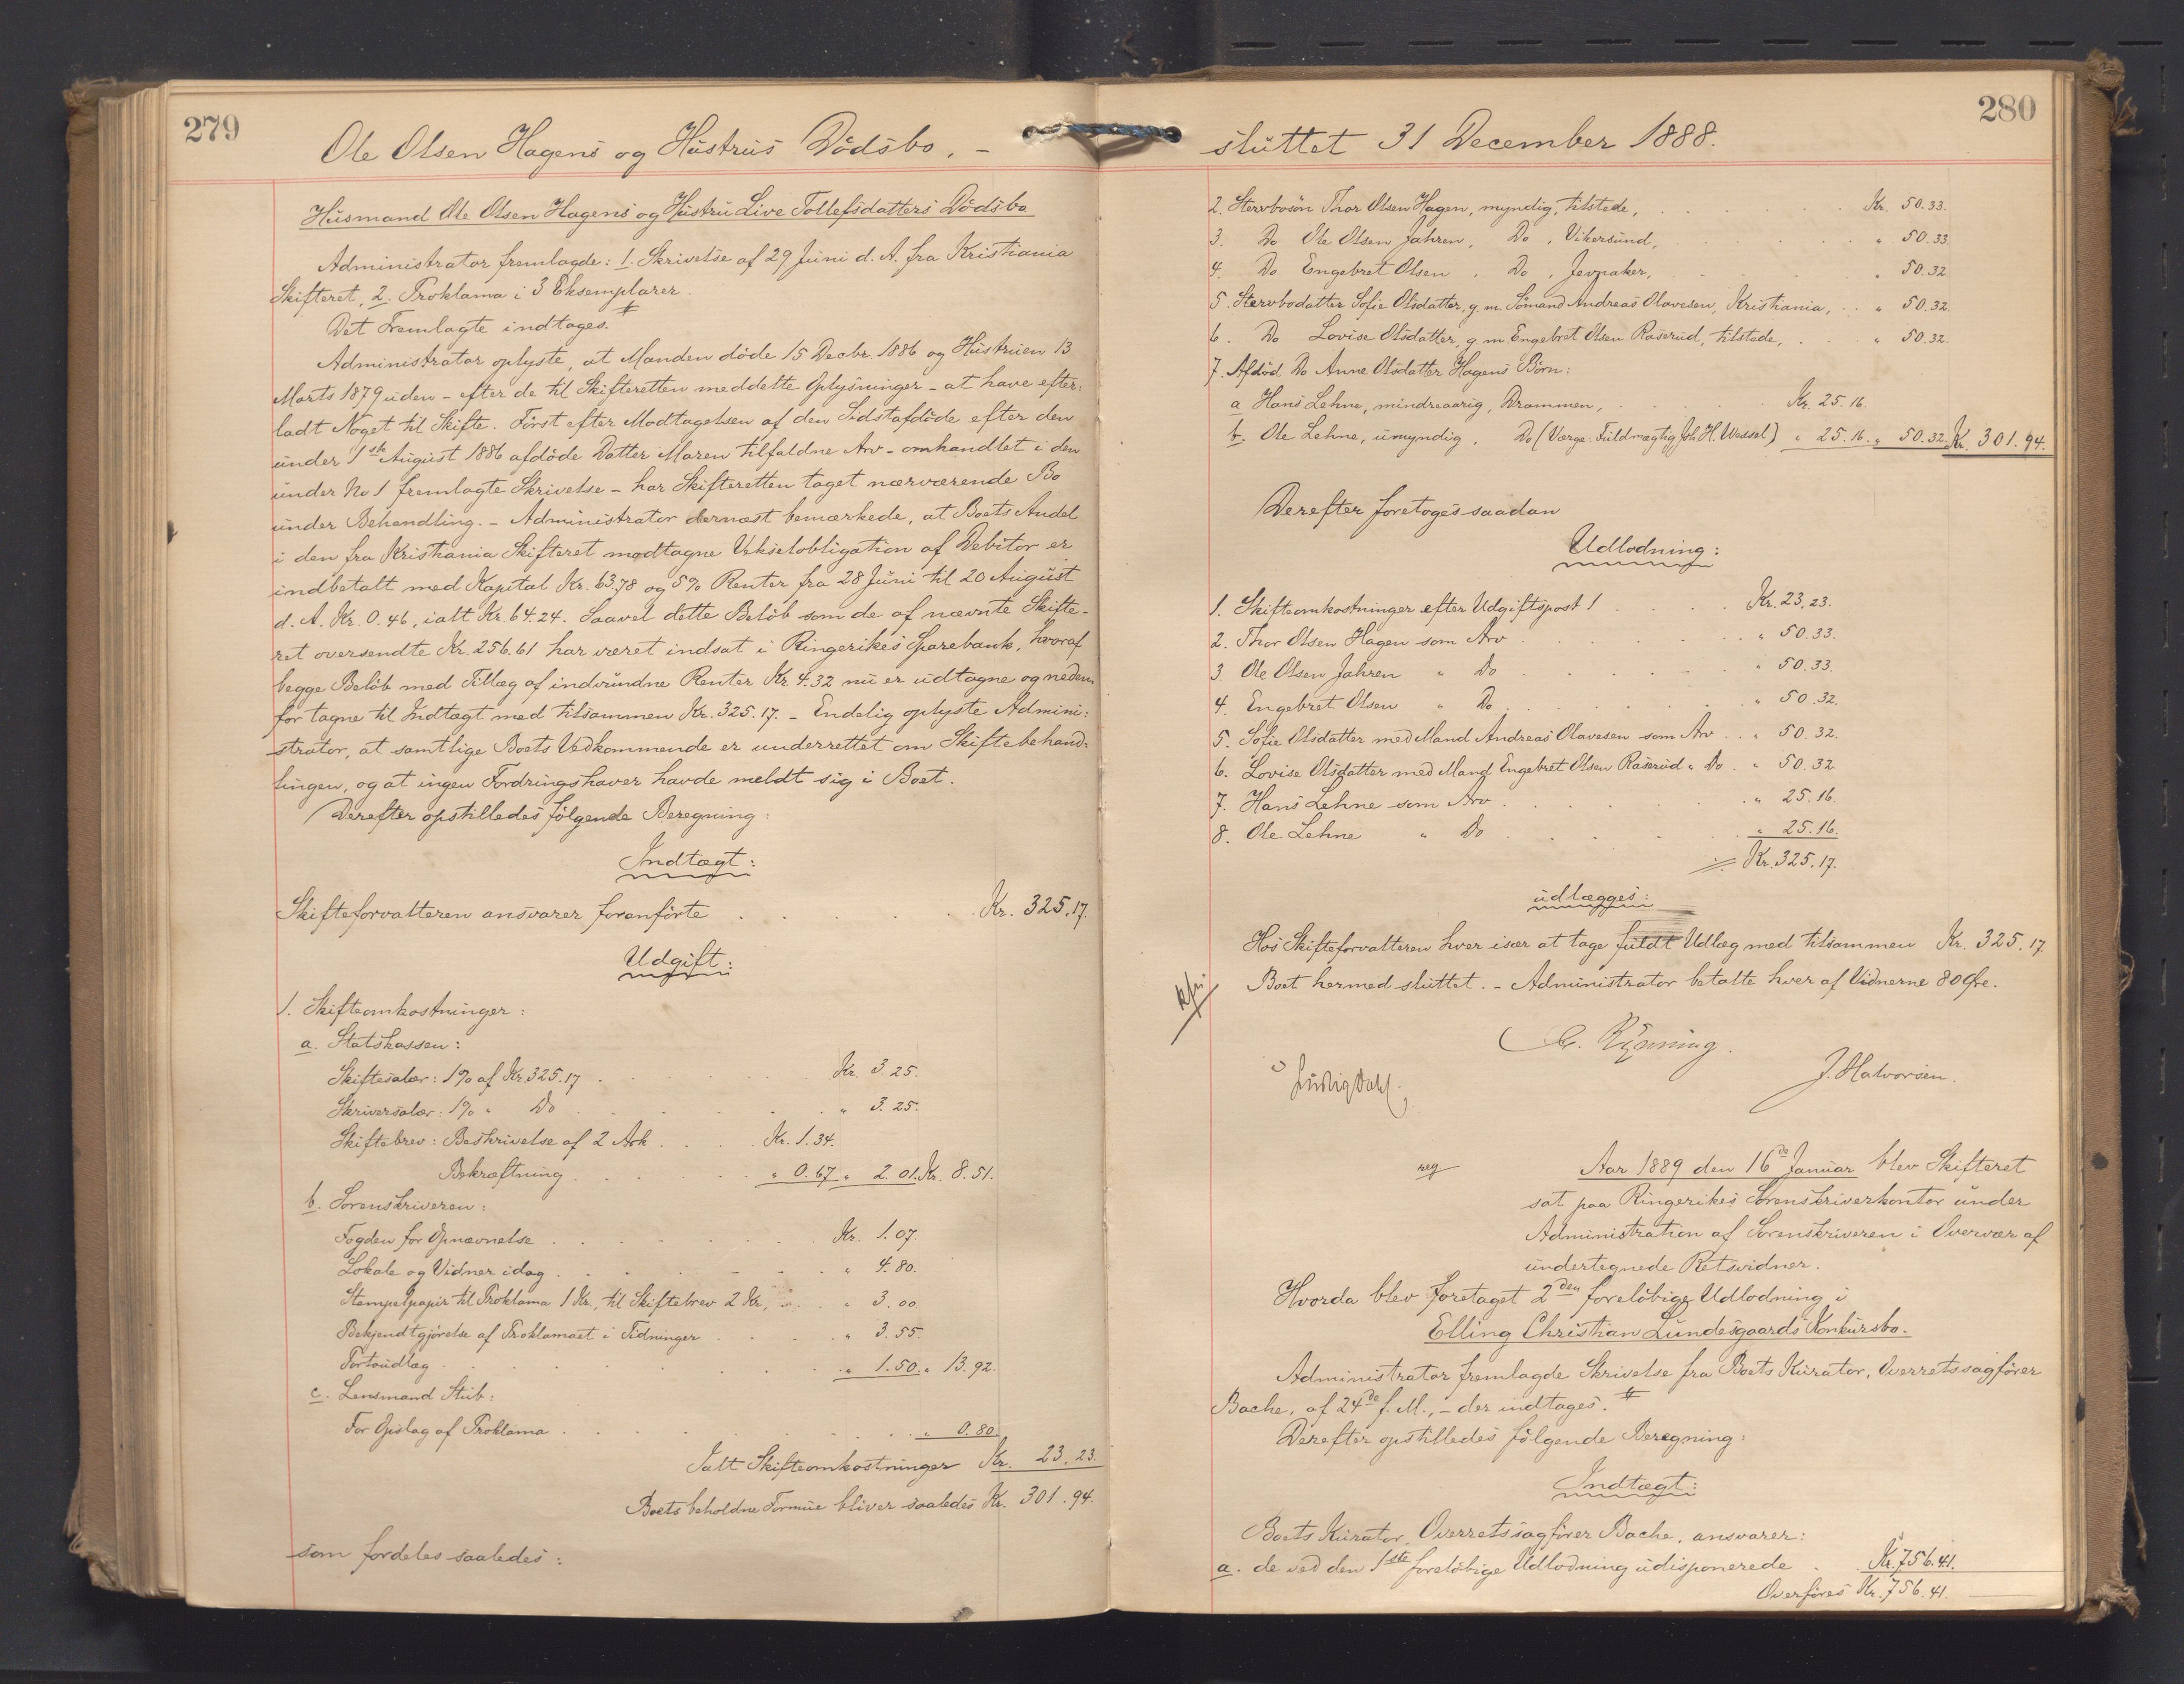 279
Ole Olsen Hagens og Hustrus Dödsbo. –
Husmand Ole Olsen Hagens og Hustru Live Tollefsdatters Dödsbo
Administrator fremlagde: 1. Skrivelse af 29 Juni d. A. fra Kristiania
Skifteret, 2. Proklama i 3 Eksemplarer.
Det Fremlagte indtages. #
Administrator oplyste, at Manden döde 15 Decbr. 1886 og Hustruen 13
Marts 1879 uden – efter de til Skifteretten meddelte Oplysninger – at have efter-
ladt Noget til Skifte. Först efter Modtagelsen af den Sidstafdöde efter den
under 1ste August 1886 afdöde Datter Maren tilfaldne Arv – omhandlet i den
under No 1 fremlagte Skrivelse – har Skifteretten taget nærværende Bo
under Behandling. – Administrator dernæst bemærkede, at Boets Andel
i den fra Kristiania Skifteret modtagne Vekselobligation af Debitor er
indbetalt med Kapital Kr. 63.78 og 5% Renter fra 28 Juni til 20 August
d. A. Kr. 0.46, ialt Kr. 64.24. Saavel dette Belöb som de af nævnte Skifte-
ret oversendte Kr. 256.61 har været indsat i Ringerikes Sparebank, hvoraf
begge Belöb med Tillæg af indvundne Renter Kr. 4.32 nu er udtagne og neden-
for tagne til Indtægt med tilsammen Kr. 325.17. – Endelig oplyste Admini-
strator, at samtlige Boets Vedkommende er underrettet om Skiftebehand-
lingen, og at ingen Fordringshaver havde meldt sig i Boet.
Derefter opstilledes fölgende Beregning:
Indtægt:
Skifteforvalteren ansvarer foranförte . . . . . . Kr. 325.17.
Udgift:
1. Skifteomkostninger:
a. Statskassen:
Skiftesalær: 1% af Kr. 325.17 . . . . Kr. 3.25.
Skriversalær: 1% " Do . . . . " 3.25.
Skiftebrev: Beskrivelse af 2 Ark . . . . Kr. 1.34.
Bekræftning . . . . . " 0.67 " 2.01. Kr. 8.51.
b. Sorenskriveren:
Fogden for Opnævnelse . . . . . . Kr. 1.07.
Lokale og Vidner idag . . . . . . " 4.80.
Stempelpapir til Proklama 1 Kr., til Skiftebrev 2 Kr, . . . " 3.00
Bekjendtgjörelse af Proklamaet i Tidninger . . . . " 3.55.
Portoudlæg . . . . . . " 1.50. " 13.92.
c. Lensmand Stub:
For Opslag af Proklama . . . . . . " 0.80
Ialt Skifteomkostninger Kr. 23.23.
Boets beholdne Formue bliver saaledes Kr. 301.94.
som fordeles saaledes:
280
sluttet 31 December 1888.
2. Stervbosön Thor Olsen Hagen, myndig, tilstede, . . . . Kr. 50.33.
3. Do Ole Olsen Jahren, Do, Vikersund, . . . . " 50.33
4. Do Engebret Olsen, Do, Jevnaker, . . . . " 50.32
5. Stervbodatter Sofie Olsdatter, g. m. Sömand Andreas Olavesen, Kristiania, . . " 50.32.
6. Do Lovise Olsdatter, g. m Engebret Olsen Raserud, tilstede, . . . " 50.32.
7. Afdöd Do Anne Olsdatter Hagens Börn:
a Hans Lehne, mindreaarig, Drammen, . . . Kr. 25.16.
b. Ole Lehne, umyndig, Do (Værge: Fuldmægtig Joh. H. Wessel) " 25.16. " 50.32. Kr. 301.94.
Derefter foretoges saadan
Udlodning:
1. Skifteomkostninger efter Udgiftspost 1 . . . . Kr. 23.23.
2. Thor Olsen Hagen som Arv . . . . " 50.33.
3. Ole Olsen Jahren " Do . . . . " 50.33.
4. Engebret Olsen " Do . . . . " 50.32.
5. Sofie Olsdatter med Mand Andreas Olavesen som Arv . . " 50.32.
6. Lovise Olsdatter med Mand Engebret Olsen Raserud " Do . " 50.32
7. Hans Lehne som Arv . . . . " 25.16.
8. Ole Lehne " Do . . . . " 25.16.
Kr. 325.17.
udlægges:
Hos Skifteforvalteren hver især at tage fuldt Udlæg med tilsammen Kr. 325.17
Boet hermed sluttet. – Administrator betalte hver af Vidnerne 80 Øre.
C. Rynning.
Ludvig Dahl.
J. Halvorsen.
reg
Aar 1889 den 16de Januar blev Skifteret
sat paa Ringerikes Sorenskriverkontor under
Administration af Sorenskriveren i Overvær af
undertegnede Retsvidner.
Hvorda blev foretaget 2den forelöbige Udlodning i
Elling Christian Lundesgaards Konkursbo.
Administrator fremlagde Skrivelse fra Boets Kurator, Overretssagförer
Bache, af 24de f. M., – der indtages. #
Derefter opstilledes fölgende Beregning:
Indtægt:
Boets Kurator, Overretssagförer Bache, ansvarer:
a. de ved den 1ste forelöbige Udlodning udisponerede . Kr. 756.41.
Overföres Kr. 756.41.